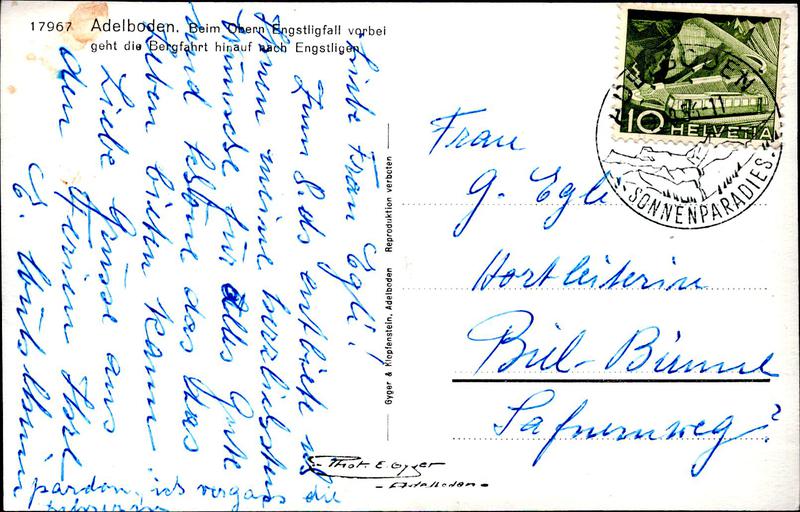 17967 Adelboden. Beim Obern Engstligfall vorbei
geht die Bergfahrt hinauf nach Engstligen
Liebe Frau Egli!
Zum 8. ds entbiete ich
Ihnen meine herzlichsten
Wünsche für alles Gute
und Schöne das das
Leben bieten kann
Liebe Grüsse aus
den Ferien Ihre
pardon, ich vergass die
Gyger & Klopfenstein, Adelboden Reproduktion verboten
Phot. E. Gyger
-Adelboden-
HELVETIA
10
ADELBODEN
SONNENPARADIES
Frau
G. Egli
Hortleiterin
Biel-
?